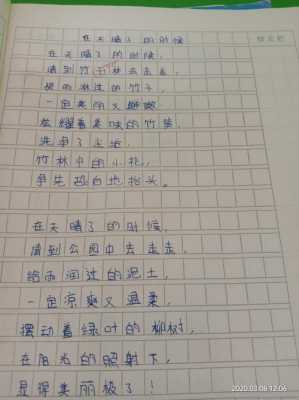 在天晴了的时候
在天晴了的时候,
请到竹子林去走走。
被雨淋过的竹子,
一定美丽又
炫耀着美味的竹笋,
洗净了尘垢。
竹林中的小花,
争先恐白地抬头。
在天晴了的时候,
请到公园中去走走。
给雨润过的泥土,
一定凉爽又温柔,
摆动着绿叶的柳树,
在阳光的照射下,
显得美丽极了!
2020.03.06 12:06